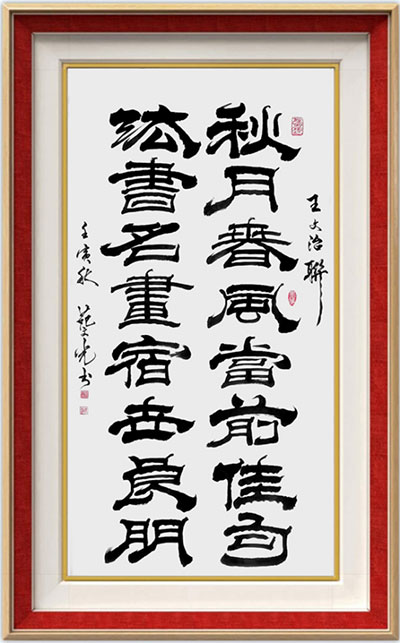 王文治聯
秋月春風當前佳句
法書名畫宿世良朋
壬寅秋 书